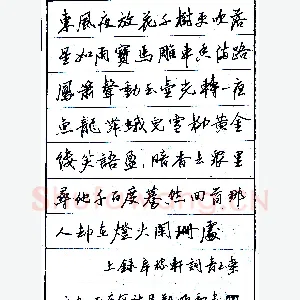 東風夜放花千樹更吹落
星如雨寶馬雕車香滿路
鳳簫聲動玉壺光轉一夜
魚龍舞蛾兒雪柳黃金
縷笑語盈、暗香去眾里
尋他千百度驀然回首那
人卻在燈火闌珊處
上錄辛稼軒詞青玉案